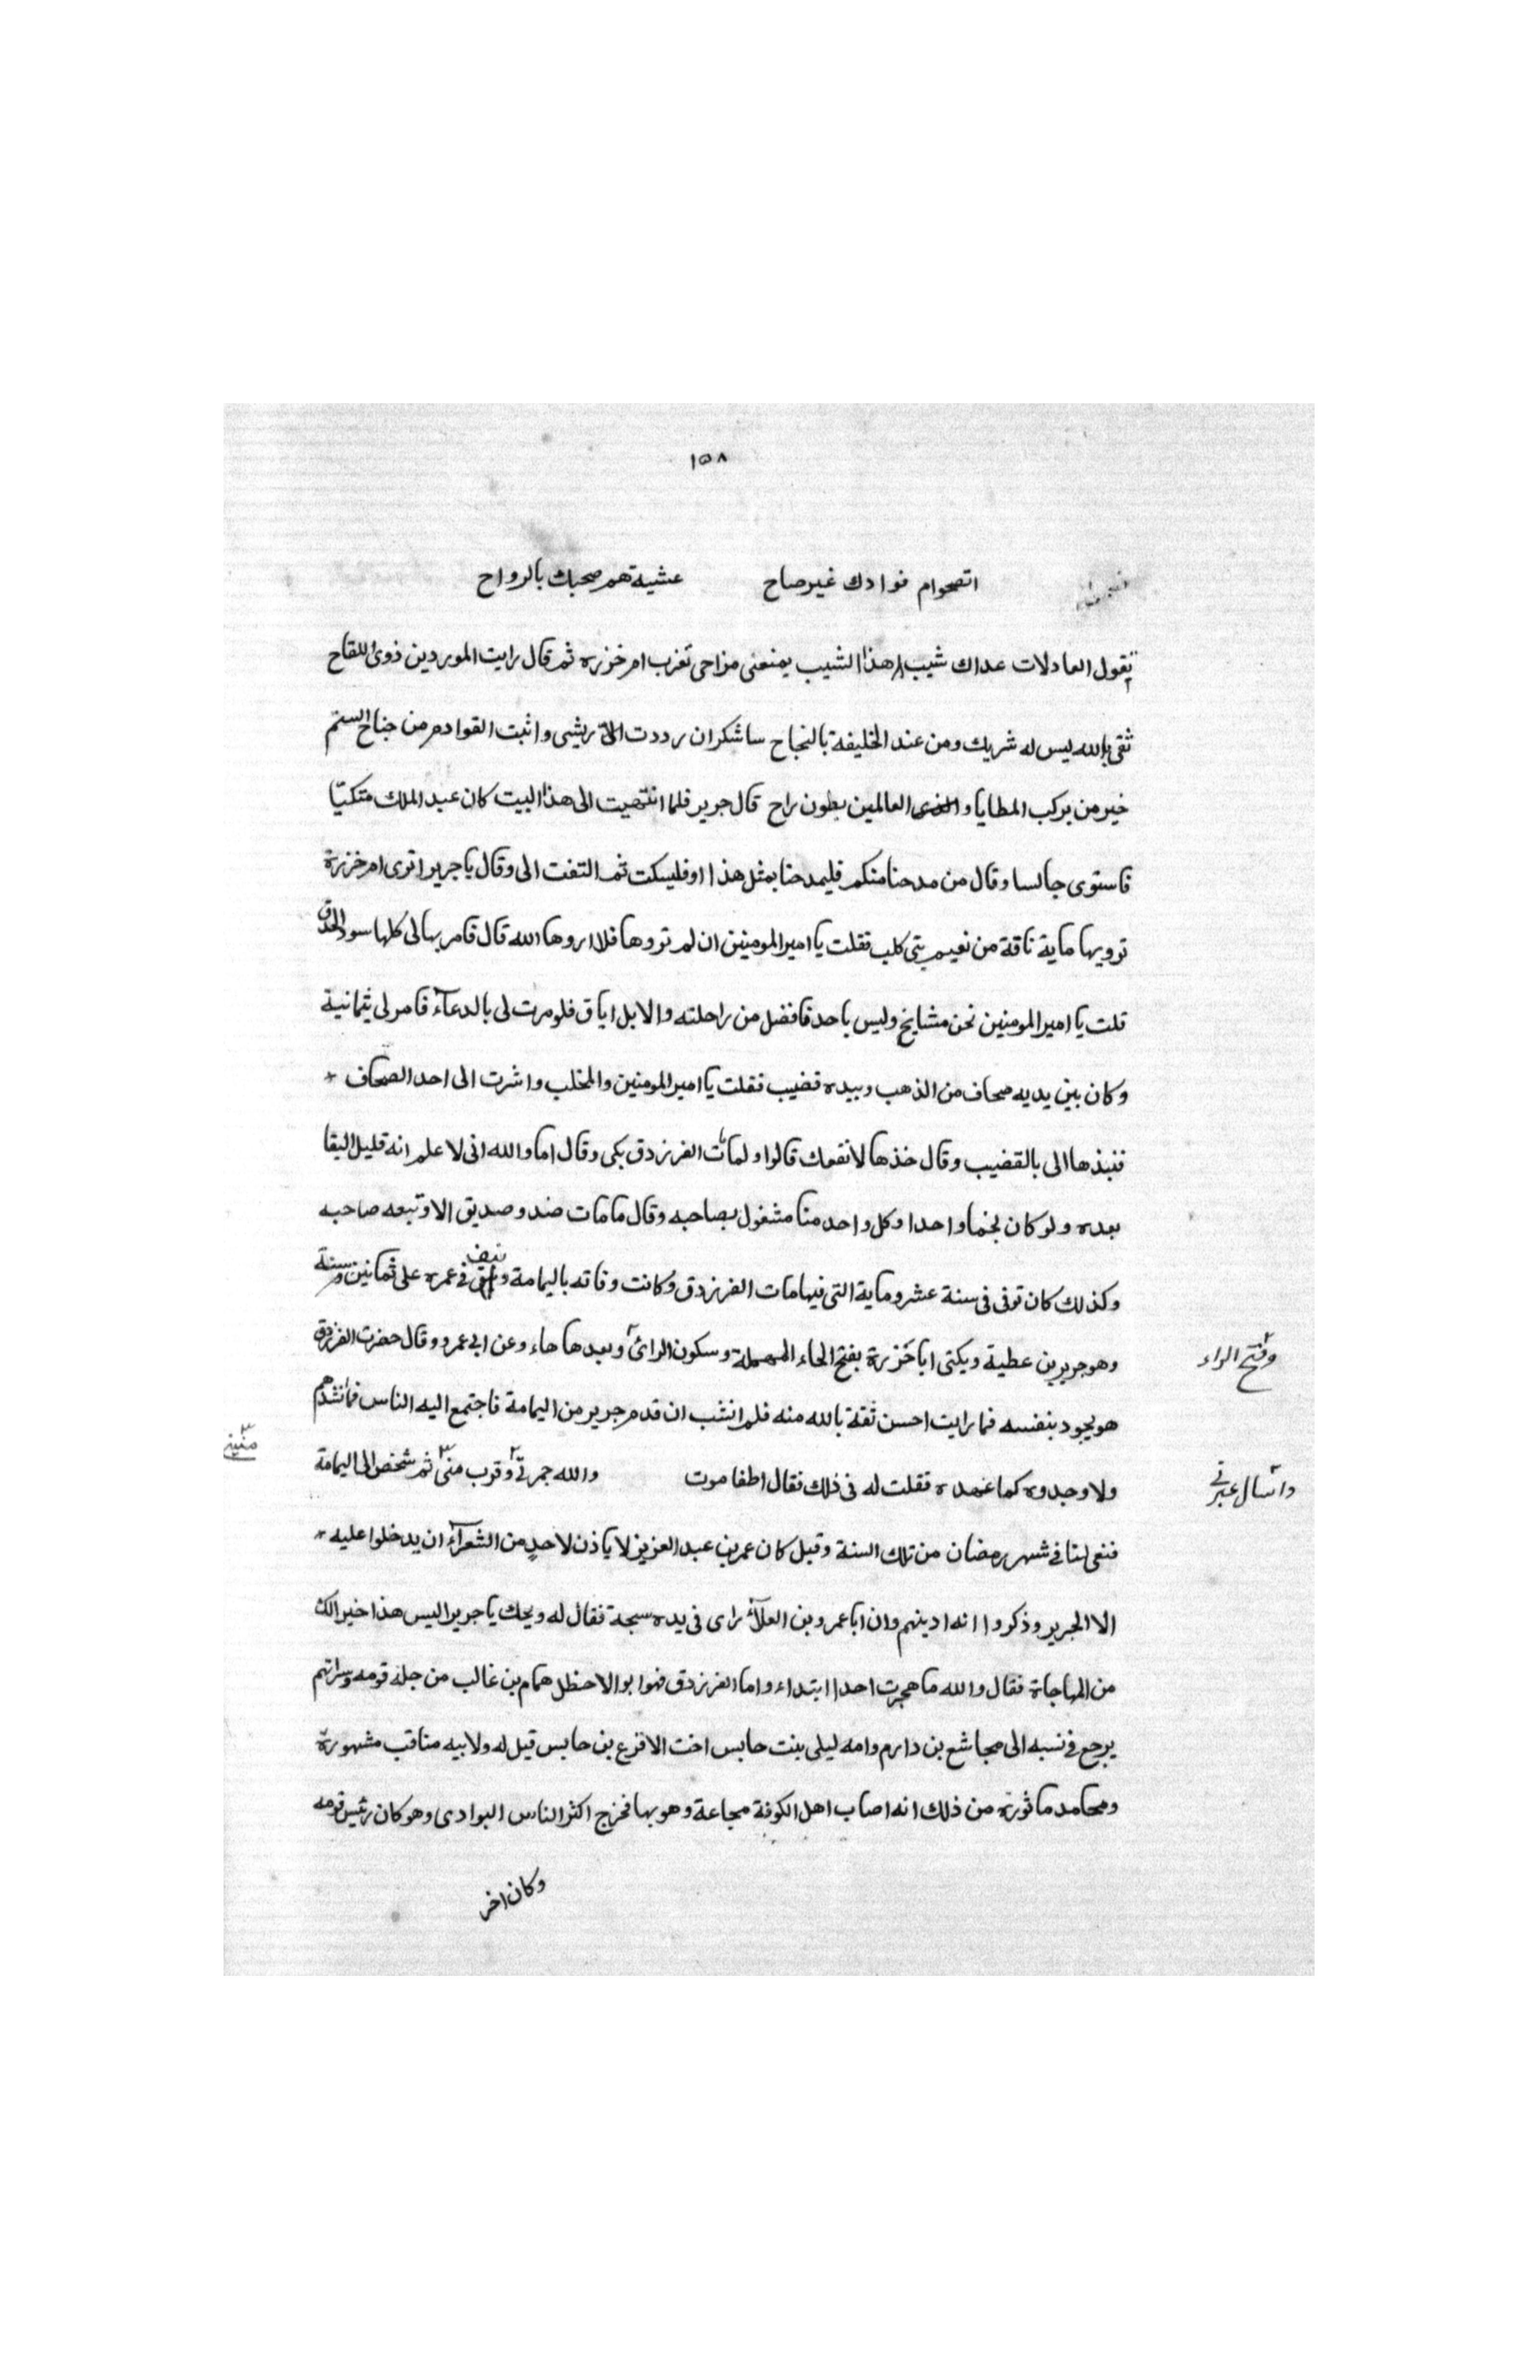 ١٥٨
اتصحوام فوادك غير صاح عشية هم صحبك بالرواح
يقول العادلات عداك شيب اهذا الشيب يمنعنى مزاحى تعزب ام خزره ثم قال رايت الموردين ذوى اللقاح
ثقى بالله ليس له شريك ومن عند الخليفة بالنجاح ساشكران رددت الىّ ريشى واثبت القوادم من جناح الستم
خير من يركب المطايا واندى العالمين بطون راح قال جرير فلما انتهيت الى هذا البيت كان عبد الملك متكيّا
فاستوى جالسا وقال من مدحنا منكم فليمدحنا بمثل هذا اوفليسكت ثم التفت الى وقال يا جرير اترى ام خزرة
ترويها ماية ناقة من نعيم بنى كلب فقلت يا امير المومنين ان لم تروها فلا ارو ها الله قال فامر بها لى كلها سود الحدق
قلت يا امير المومنين نحن مشايخ وليس باحدنا فضل من راحلته والابل اباق فلو مرت لى بالدعآء فامر لى بثمانية
وكان بين يديه صحاف من الذهب وبيده قضيب فقلت يا امير المومنين والمحلب واشرت الى احد الصحاف
فنبذها الى بالقضيب وقال خذها لا نفعك قالوا ولمامات الفرزدق بكى وقال اما والله انى لا علم انه قليل البقا
بعده ولو كان نجما واحدا وكل واحد منا مشغول بصاحبه وقال ما مات ضد وصديق الا وتبعه صاحبه
وكذلك كان توفى فى سنة عشر وماية التى فيها مات الفرزدق وكانت وفاته باليمامة ونيف فى عمره على ثمانين سنة
وهو جرير بن عطية ويكنى ابا خزرة بفتح الحاء المهملة وسكون الزائ وبعدها هاء وعن ابى عمرو وقال حضرت الفرزدق
وفتح الراء
هو يجود بنفسه فما رايت احسن ثقة بالله منه فلم انشب ان قدم جرير من اليمامة فاجتمع اليه الناس فما انشدهم
ولا وجدوه كما عهده فقلت له فى ذلك فقال اطفا موت والله جمرتى وقرب منى ثم شخص الى اليمامة
واسال عبرتى
منيتى
فنعى لنا فى شهر رمضان من تلك السنة وقيل كان عمر بن عبد العزيز لا ياذن لاحدٍ من الشعرآء ان يدخلوا عليه
الا الجرير وذكروا انه ادينهم وان ابا عمرو بن العلآء راى فى يده سبحة فقال له ويحك يا جرير اليس هذا خيرالك
من المهاجاة فقال والله ما هجرت احدا ابتداء واما الفرزدق فهوا بو الاحظل همام بن غالب من جلة قومه وسراتهم
يرجع فى نسبه الى مجاشع بن دارم وامه ليلى بنت حابس اخت الاقرع بن حابس قيل له ولابيه مناقب مشهورة
ومحامد ماثورة من ذلك انه اصاب اهل الكوفة مجاعة وهو بها فخرج اكثر الناس البوادى وهو كان رئيس قومه
وكان اخر